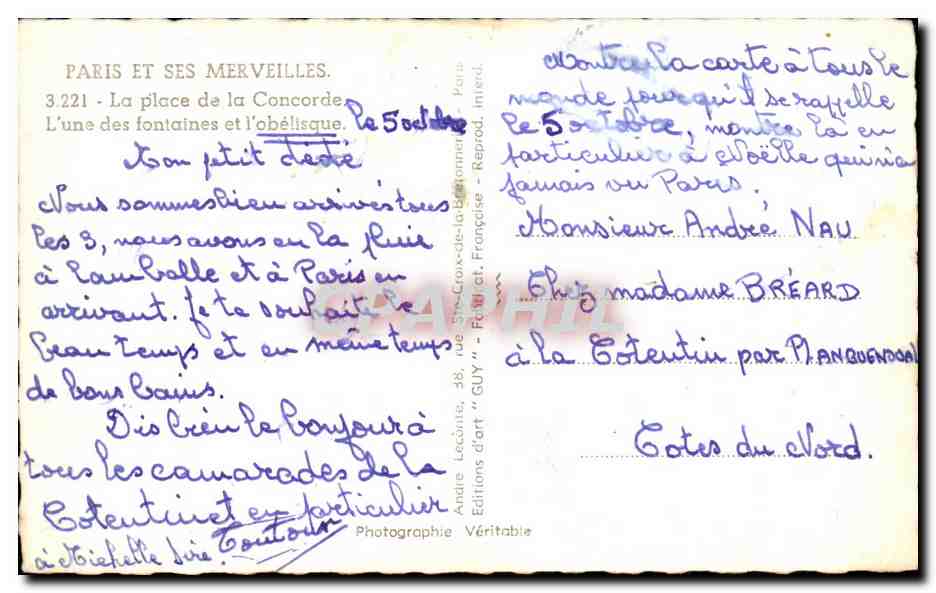 PARIS ET SES MERVEILLES.
3.221 - La place de la Concorde.
L'une des fontaines et l'obélisque.
le 5 octobre
Mon petit dédé
Nous sommes bien arrivés tous
les 3, nous avons eu la pluie
à Lamballe et à Paris en
arrivant. Je te souhaite le
beau temps et en même temps
de bons bains.
Dis bien le bonjour à
tous les camarades de la
Cotentin et en particulier
à Michelle Sire. Toutour
Montre la carte à tous le
monde pourqu'il se rappelle
le 5 octobre, montre là en
particulier à Noëlle qui n'a
jamais vu Paris.
Monsieur André NAU
Chez madame BRÉARD
à la Cotentin par PLANGUENOUAL
Cotes du Nord.
André Leconte, 38, rue Ste-Croix-de-la-Bretonnerie - Paris
Editions d'art "GUY" - Fabricat. Française - Reprod. interd.
Photographie Véritable
CPAPHIL